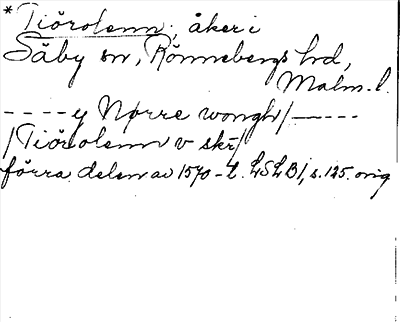 *Tiörolenn, åker i
Säby sn, Rönnebergs hd,
Malm. l.
----y Nørre wongh/-----
/Tiörolenn v skr/
förra delen av 1570-t. LSLB1, s. 125. orig